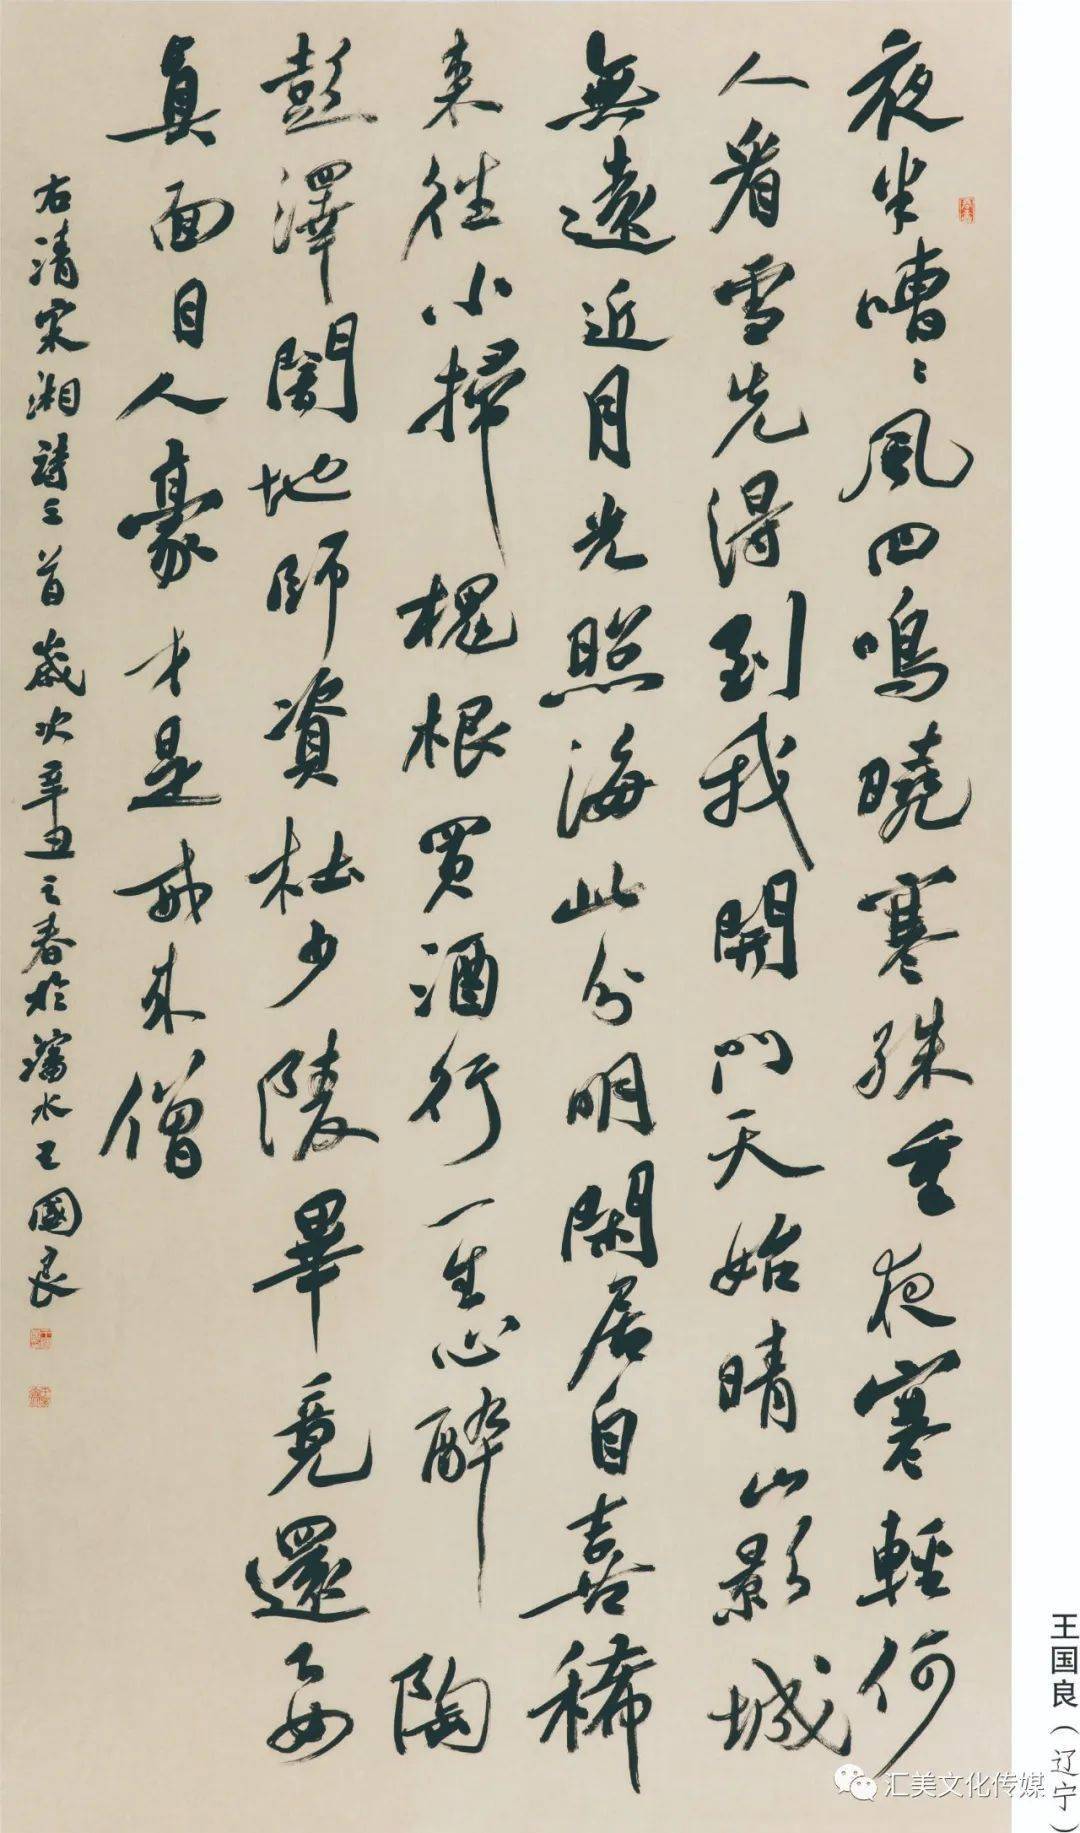 夜半嘈〻風四鳴曉寒殊重夜寒輕何
人看雪先得到我開門天始晴山影城
無遠近月光照海此分明閑居自喜稀
來往小掃槐根買酒行一生心醉陶
彭澤闊地師資杜少陵畢竟還吾
真面目人豪才是戒來僧
右清宋湘詩三首歲次辛丑之春於瀋水王國良
王国良（辽宁）
汇美文化传媒